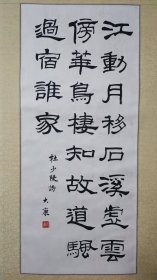 江動月移石溪虛雲
傍華鳥棲知故道颿
過宿誰家
杜少陵詩 大康